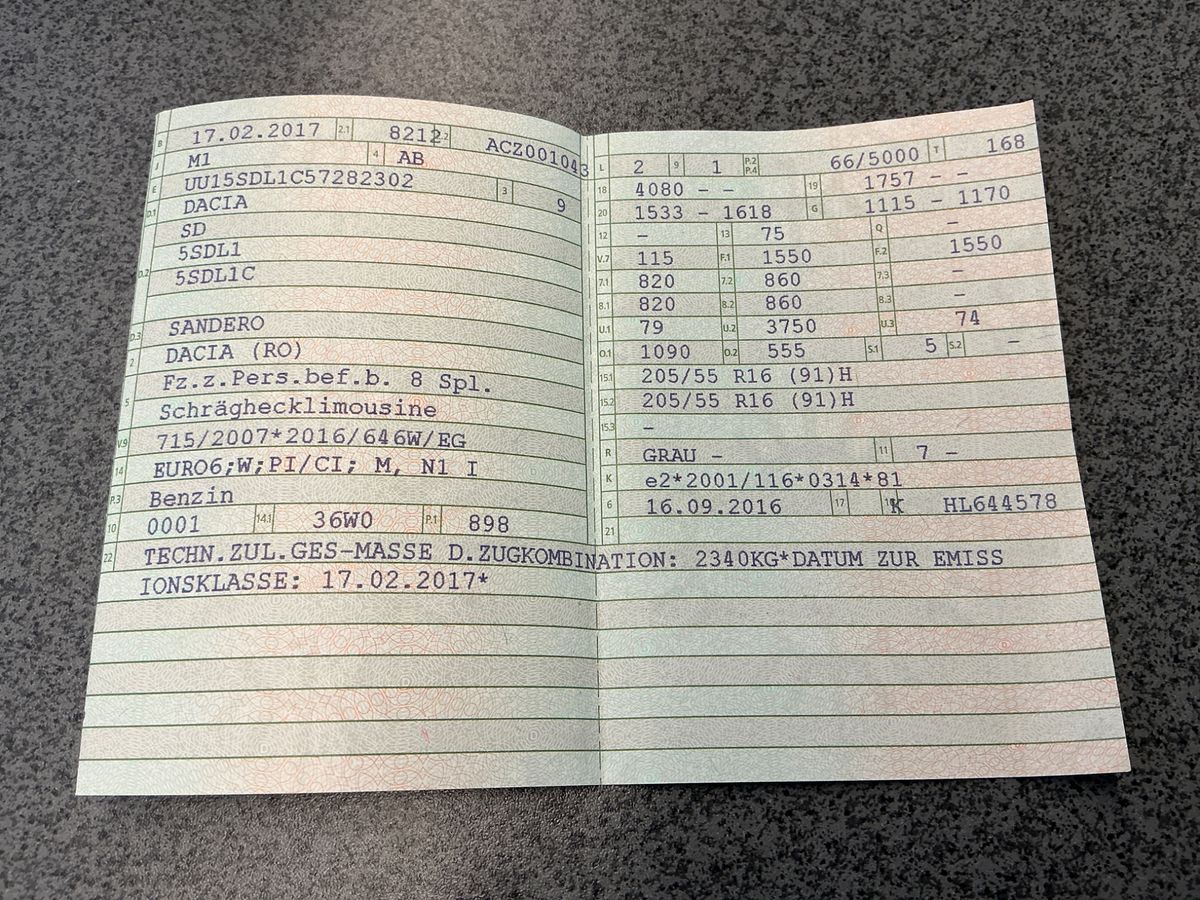 B 17.02.2017 2.1 8212 2.2 ACZ001043
J M1 4 AB
E UU15SDL1C57282302 3 9
D.1 DACIA
SD
5SDL1
D.2 5SDL1C
D.3 SANDERO
2 DACIA (RO)
Fz.z.Pers.bef.b. 8 Spl.
5 Schräghecklimousine
V.9 715/2007*2016/646W/EG
14 EURO6;W;PI/CI; M, N1 I
P.3 Benzin
10 0001 14.1 36W0 P.1 898
L 2 9 1 P.2 P.4 66/5000 T 168
18 4080 - - 19 1757 - -
20 1533 - 1618 G 1115 - 1170
12 - 13 75 Q -
V.7 115 F.1 1550 F.2 1550
7.1 820 7.2 860 7.3 -
8.1 820 8.2 860 8.3 -
U.1 79 U.2 3750 U.3 74
O.1 1090 O.2 555 S.1 5 S.2 -
15.1 205/55 R16 (91)H
15.2 205/55 R16 (91)H
15.3 -
R GRAU - 11 7 -
K e2*2001/116*0314*81
6 16.09.2016 17 K HL644578
21
22 TECHN.ZUL.GES-MASSE D.ZUGKOMBINATION: 2340KG*DATUM ZUR EMISS
IONSKLASSE: 17.02.2017*